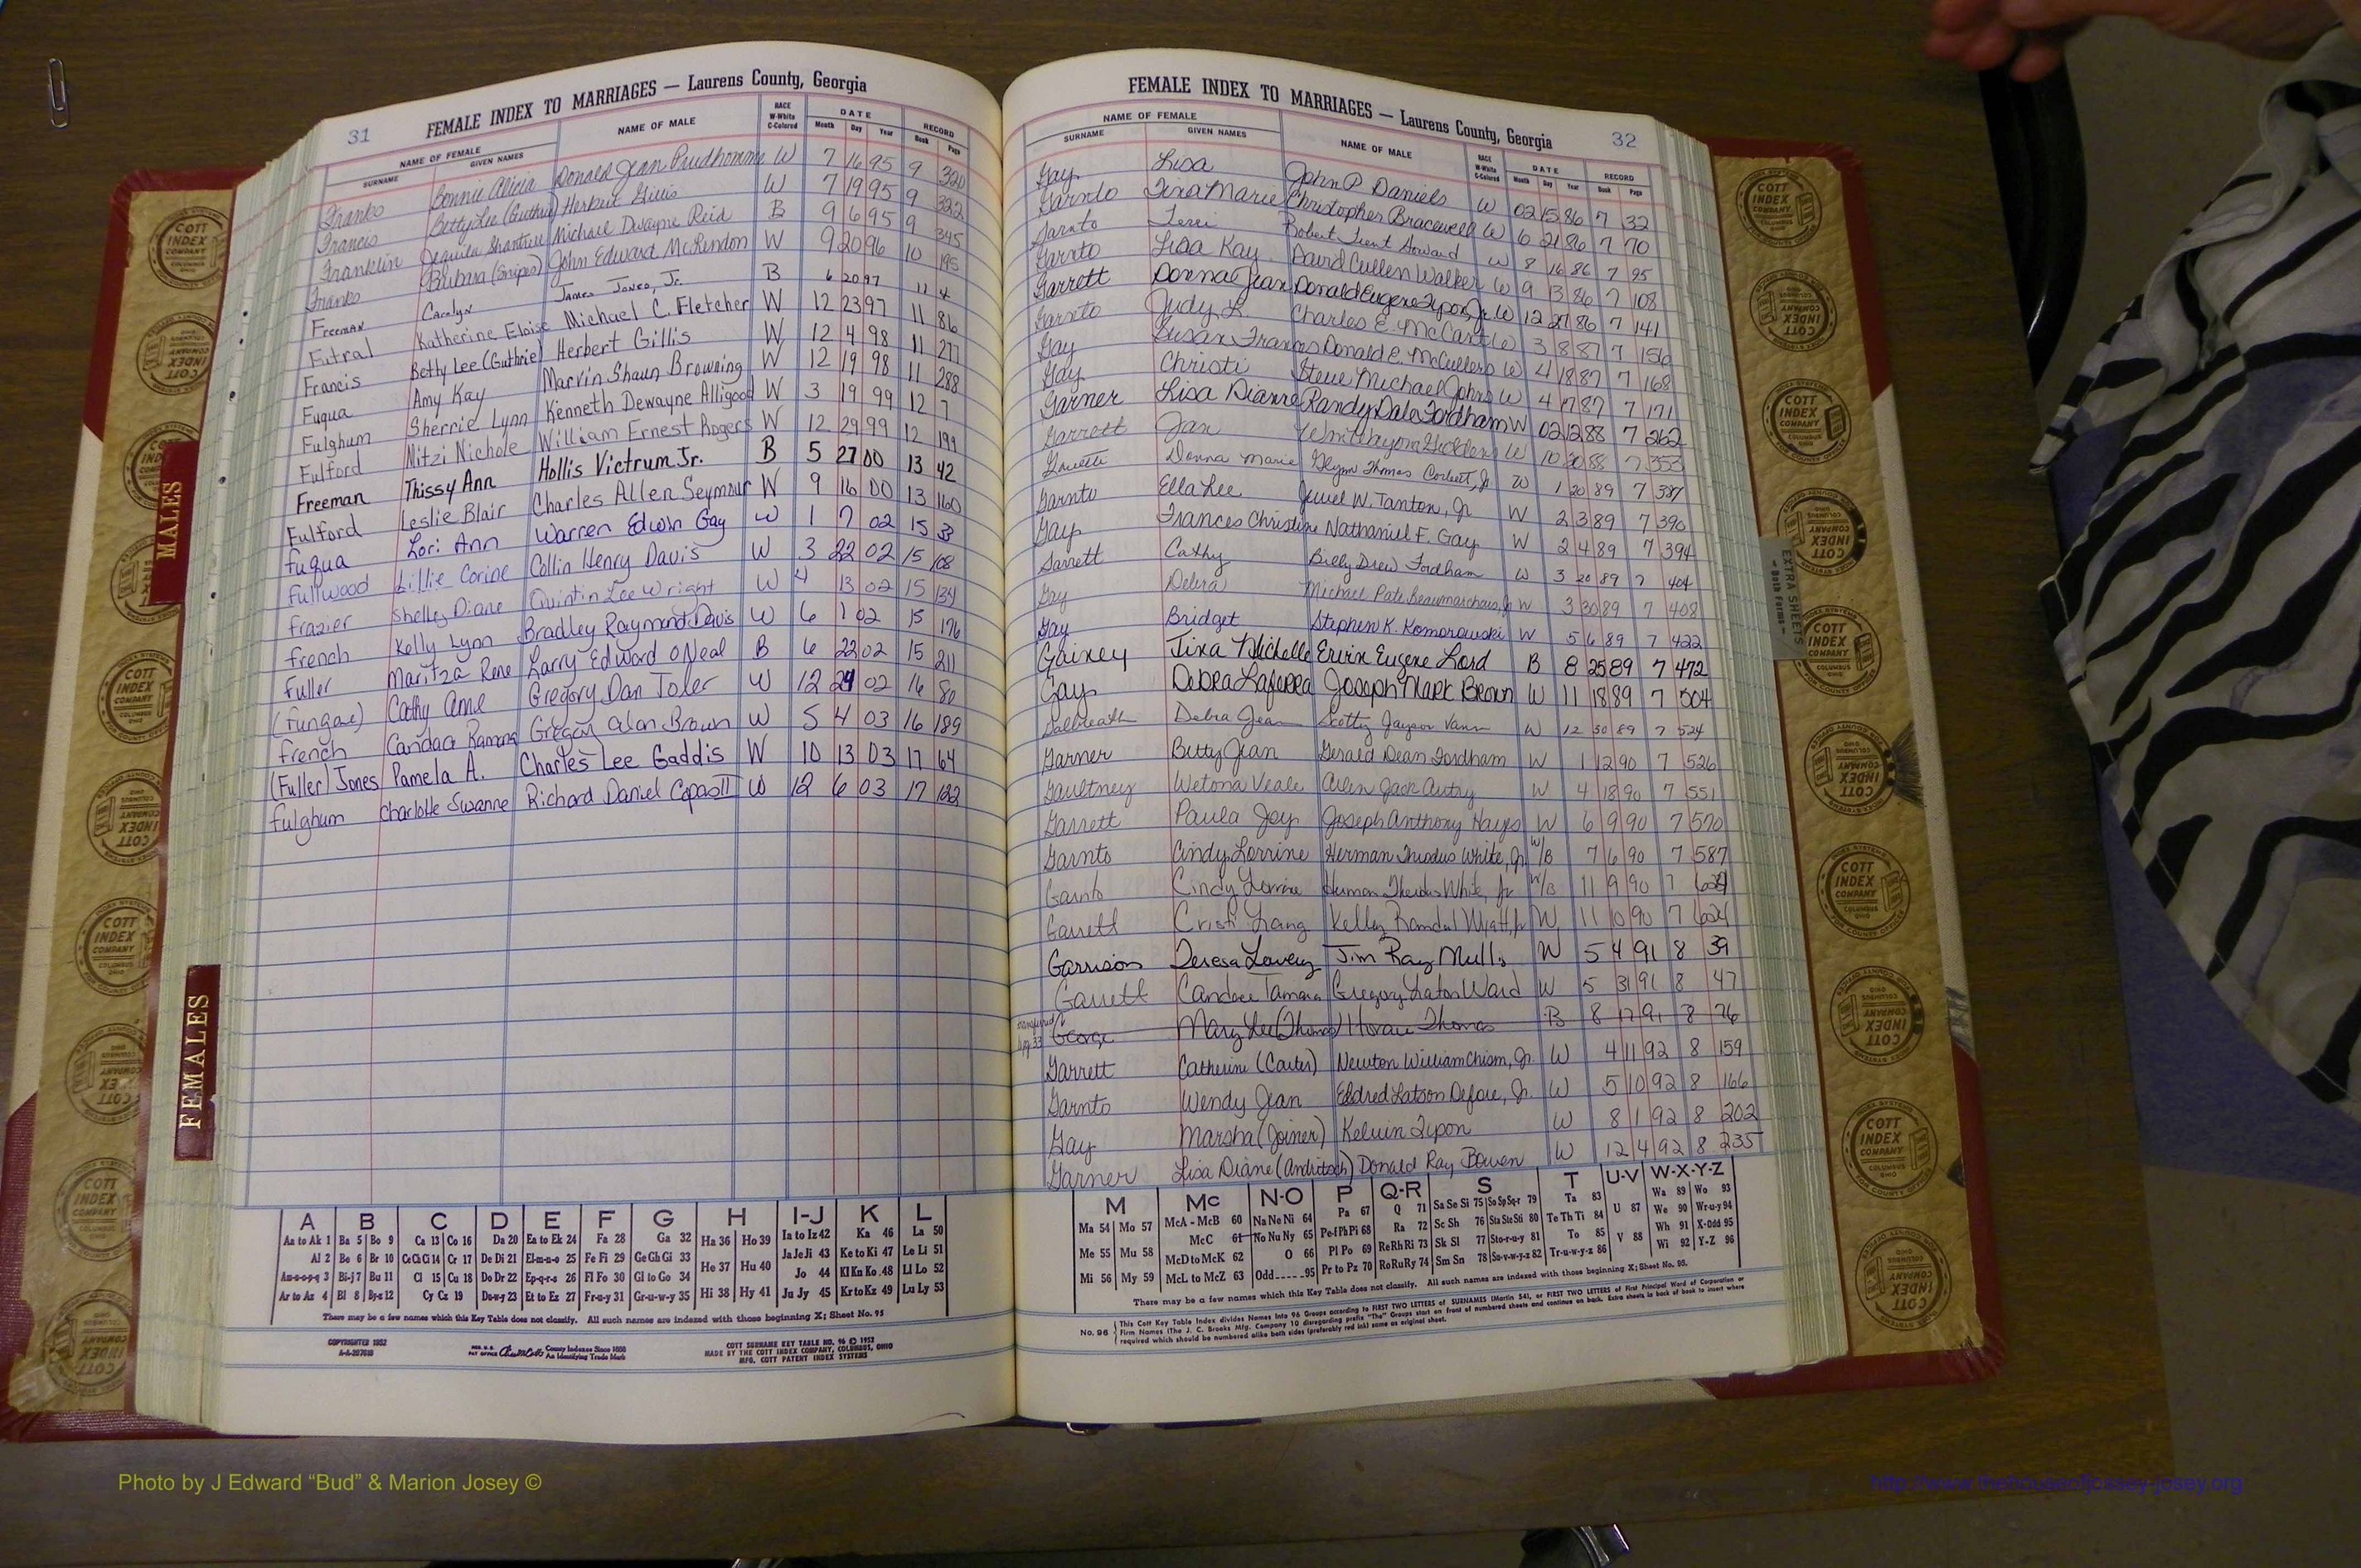 31
FEMALE INDEX TO MARRIAGES — Laurens County, Georgia
NAME OF FEMALE NAME OF MALE RACE W-White C-Colored DATE RECORD
SURNAME GIVEN NAMES Month Day Year Book Page
Franks Bonnie Alicia Donald Jean Prudhomme W 7 16 95 9 320
Francis Betty Lee (Guthrie) Herbert Gillis W 7 19 95 9 322
Franklin Michael Dwayne Reid B 9 6 95 9 345
Franks Barbara (Snipes) John Edward McLendon W 9 20 96 10 195
Freeman Carolyn James Jones, Jr. B 6 20 97 11 4
Futral Katherine Eloise Michael C. Fletcher W 12 23 97 11 86
Francis Betty Lee (Guthrie) Herbert Gillis W 12 4 98 11 277
Fuqua Amy Kay Marvin Shaun Browning W 12 19 98 11 288
Fulghum Sherrie Lynn Kenneth Dewayne Alligood W 3 19 99 12 7
Fulford Mitzi Nichole William Ernest Rogers W 12 29 99 12 199
Freeman Thissy Ann Hollis Victrum Jr. B 5 27 00 13 42
Fulford Leslie Blair Charles Allen Seymour W 9 16 00 13 160
Fuqua Lori Ann Warren Edwin Gay W 1 7 02 15 33
Fullwood Lillie Corine Collin Henry Davis W 3 22 02 15 108
Frazier Shelley Diane Quintin Lee Wright W 4 13 02 15 134
French Kelly Lynn Bradley Raymond Davis W 6 1 02 15 176
Fuller Maritza Rene Larry Edward O'Neal B 6 22 02 15 211
(Fungare) Cathy Anne Gregory Dan Toler W 12 24 02 16 80
French Candace Ramona Gregory Alan Brown W 5 4 03 16 189
(Fuller) Jones Pamela A. Charles Lee Gaddis W 10 13 03 17 64
Fulghum Charlotte Swanne Richard Daniel W 12 6 03 17 122
MALES
FEMALES
A B C D E F G H I-J K L
Aa to Ak 1 Ba 5 Bo 9 Ca 13 Co 16 Da 20 Ea to Ek 24 Fa 28 Ga 32 Ha 36 Ho 39 Ia to Iz 42 Ka 46 La 50
Al 2 Be 6 Br 10 Ce Ch Ci 14 Cr 17 De Di 21 El-m-n-o 25 Fe Fi 29 Ge Gh Gi 33 He 37 Hu 40 Ja Je Ji 43 Ke to Ki 47 Le Li 51
Am-n-o-p-q 3 Bi-j 7 Bu 11 Cl 15 Cu 18 Do Dr 22 Ep-q-r-s 26 Fl Fo 30 Gl to Go 34 Jo 44 Kl Kn Ko 48 Ll Lo 52
Ar to Az 4 Bl 8 By-z 12 Cy Cz 19 Du-w-y 23 Et to Ez 27 Fr-u-y 31 Gr-u-w-y 35 Hi 38 Hy 41 Ju Jy 45 Kr to Kz 49 Lu Ly 53
There may be a few names which this Key Table does not classify. All such names are indexed with those beginning X; Sheet No. 95
COPYRIGHTED 1952
County Indexes Since 1888
An Identifying Trade Mark
COTT SURNAME KEY TABLE NO. 96 © 1952
MADE BY THE COTT INDEX COMPANY, COLUMBUS, OHIO
MFG. COTT PATENT INDEX SYSTEMS
FEMALE INDEX TO MARRIAGES — Laurens County, Georgia
32
NAME OF FEMALE NAME OF MALE RACE W-White C-Colored DATE RECORD
SURNAME GIVEN NAMES Month Day Year Book Page
Gay Lisa John P. Daniels W 02 15 86 7 32
Garnto Tina Marie Christopher Bracewell W 6 21 86 7 70
Garnto Terri Robert Trent Howard W 8 16 86 7 95
Garnto Lisa Kay David Cullen Walker W 9 13 86 7 108
Garrett Donna Jean Donald Eugene Tipon, Jr. W 12 27 86 7 141
Garnto Judy L. Charles E. McCart W 3 8 87 7 156
Gay Susan Frances Donald E. McCullers W 4 18 87 7 168
Gay Christi Steve Michael Johns W 4 17 87 7 171
Garner Lisa Dianne Randy Dale Fordham W 02 12 88 7 262
Garrett Jan W 10 30 88 7 353
Donna Marie Glynn Thomas Corbett, Jr W 1 20 89 7 387
Garnto Ella Lee Jewel W. Tanton, Jr W 2 3 89 7 390
Gay Frances Christine Nathaniel F. Gay W 2 4 89 7 394
Garrett Cathy Billy Drew Fordham W 3 20 89 7 404
Gay Debra Michael Pate Beaumarchais, Jr W 3 30 89 7 408
Gay Bridget Stephen K. Komorowski W 5 6 89 7 422
Gainey Tina Michelle Ervin Eugene Lord B 8 25 89 7 472
Gay Debra LaFerra Joseph Mark Brown W 11 18 89 7 504
Galbreath Debra Jean Scotty Jayson Vann W 12 30 89 7 524
Garner Betty Jean Gerald Dean Fordham W 1 12 90 7 526
Gaultney Wetona Veale Allen Jack Autry W 4 18 90 7 551
Garrett Paula Joy Joseph Anthony Hayes W 6 9 90 7 570
Garnto Cindy Lorrine Herman Thodus White, Jr W/B 7 6 90 7 587
Garnto Cindy Lorrine Herman Theodus White, Jr W/B 11 9 90 7
Garrett Cristi Lang Kelley Randal Wyatt, Jr W 11 10 90 7 624
Garrison Teresa Lovey Jim Ray Mullis W 5 4 91 8 39
Garrett Candace Tamara Gregory Laton Ward W 5 31 91 8 47
George Mary Lee (Thomas) Horace Thomas B 8 17 91 8 76
Garrett Catherine (Carter) Newton William Chism, Jr. W 4 11 92 8 159
Garnto Wendy Jean Eldred Latson Defore, Jr. W 5 10 92 8 166
Gay Marsha (Joiner) Kelvin Tipon W 8 1 92 8 202
Garner Lisa Diane (Andritsch) Donald Ray Bowen W 12 4 92 8 235
EXTRA SHEETS
— Both Forms —
M Mc N-O P Q-R S T U-V W-X-Y-Z
Ma 54 Mo 57 McA - McB 60 Na Ne Ni 64 Pa 67 Q 71 Sa Se Si 75 So Sp Sq-r 79 Ta 83 U 87 Wa 89 Wo 93
McC 61 No Nu Ny 65 Pe-f Ph Pi 68 Ra 72 Sc Sh 76 Sta Ste Sti 80 Te Th Ti 84 We 90 Wr-u-y 94
Me 55 Mu 58 McD to McK 62 O 66 Pl Po 69 Re Rh Ri 73 Sk Sl 77 Sto-r-u-y 81 To 85 V 88 Wh 91 X-Odd 95
Mi 56 My 59 McL to McZ 63 Odd-----95 Pr to Pz 70 Ro Ru Ry 74 Sm Sn 78 Su-v-w-y-z 82 Tr-u-w-y-z 86 Wi 92 Y-Z 96
There may be a few names which this Key Table does not classify. All such names are indexed with those beginning X; Sheet No. 95.
No. 96 This Cott Key Table Index divides Names into 96 Groups according to FIRST TWO LETTERS of SURNAMES (Martin 54), or FIRST TWO LETTERS of First Principal Word of Corporation or
Firm Names (The J. C. Brooks Mfg. Company 10 disregarding prefix "The" Groups start on front of numbered sheets and continue on back. Extra sheets in back of book to insert where
required which should be numbered alike both sides (preferably red ink) same as original sheet.
COTT INDEX COMPANY COLUMBUS OHIO
Photo by J Edward “Bud” & Marion Josey ©
http://www.thehouseofjossey-josey.org